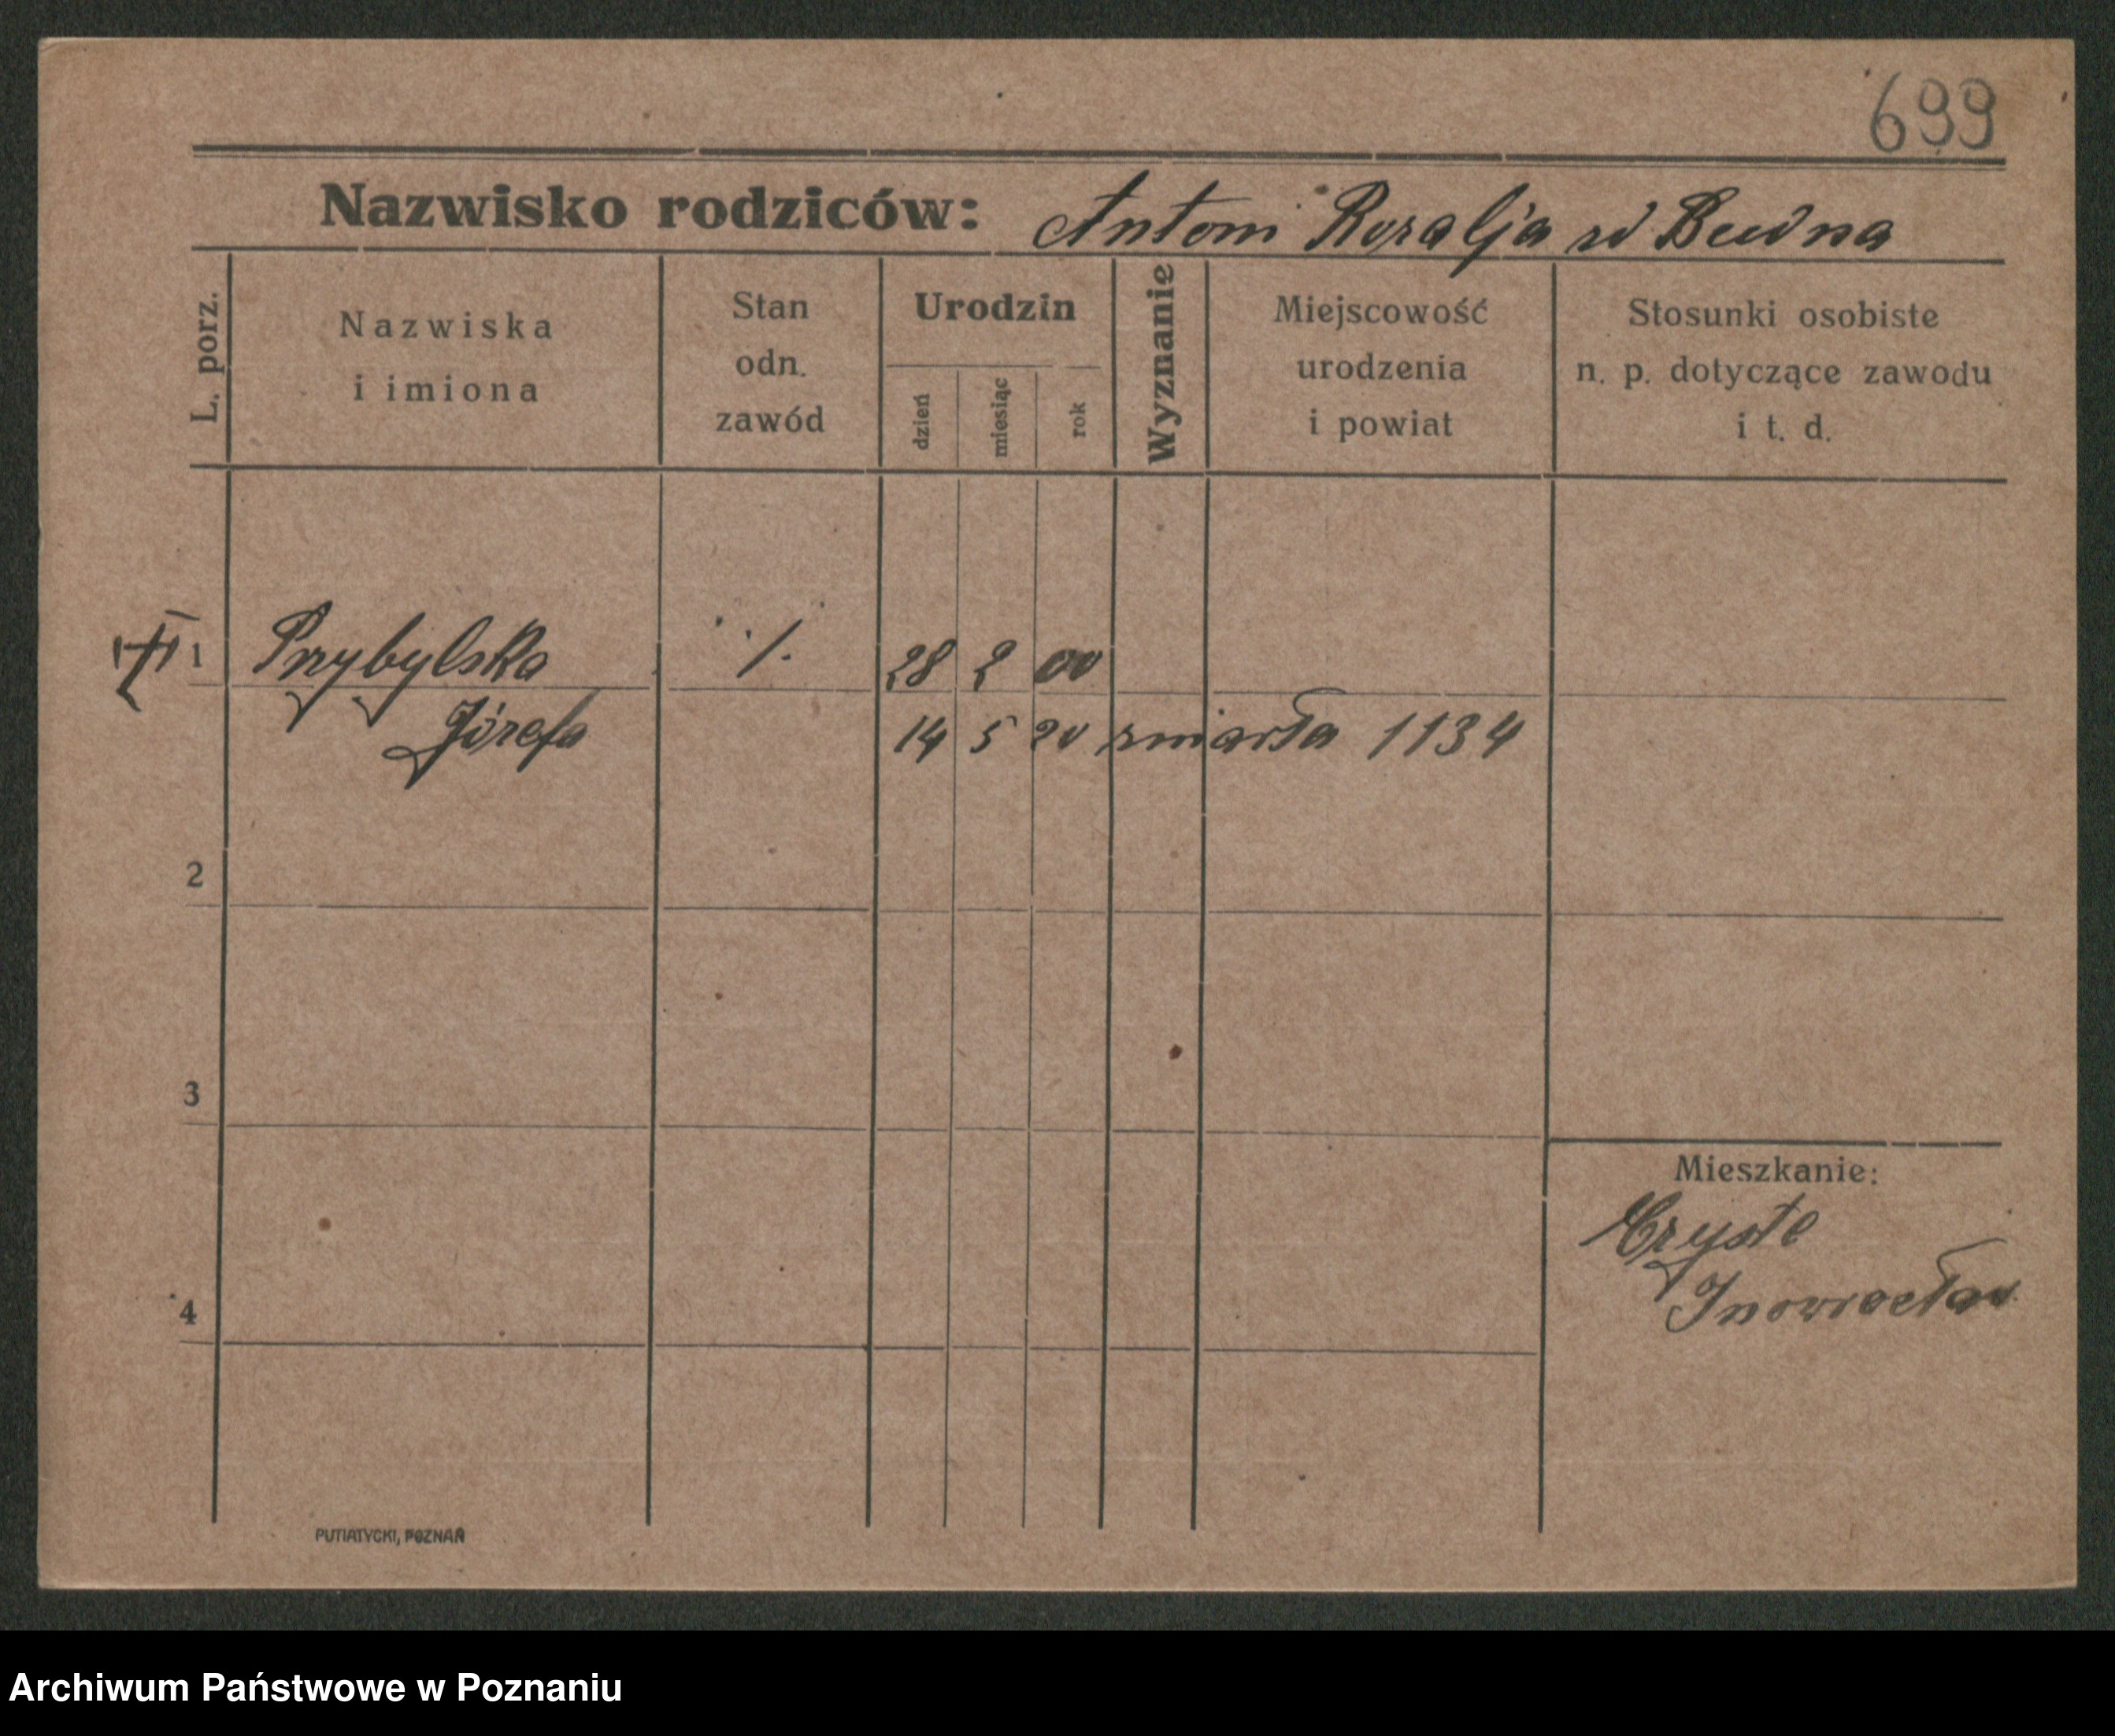 699
Nazwisko rodziców: Antoni Rozalja zd Budna
L. porz.
Nazwiska
i imiona
Stan
odn.
zawód
Urodzin
dzień
miesiąc
rok
Wyznanie
Miejscowość
urodzenia
i powiat
Stosunki osobiste
n. p. dotyczące zawodu
i t. d.
1 Przybylska ./. 28 2 00
Józefa 14 5 20 zmarła 1134
2
3
4
Mieszkanie:
Czyste
Inowrocław
PUTIATYCKI, POZNAŃ
Archiwum Państwowe w Poznaniu